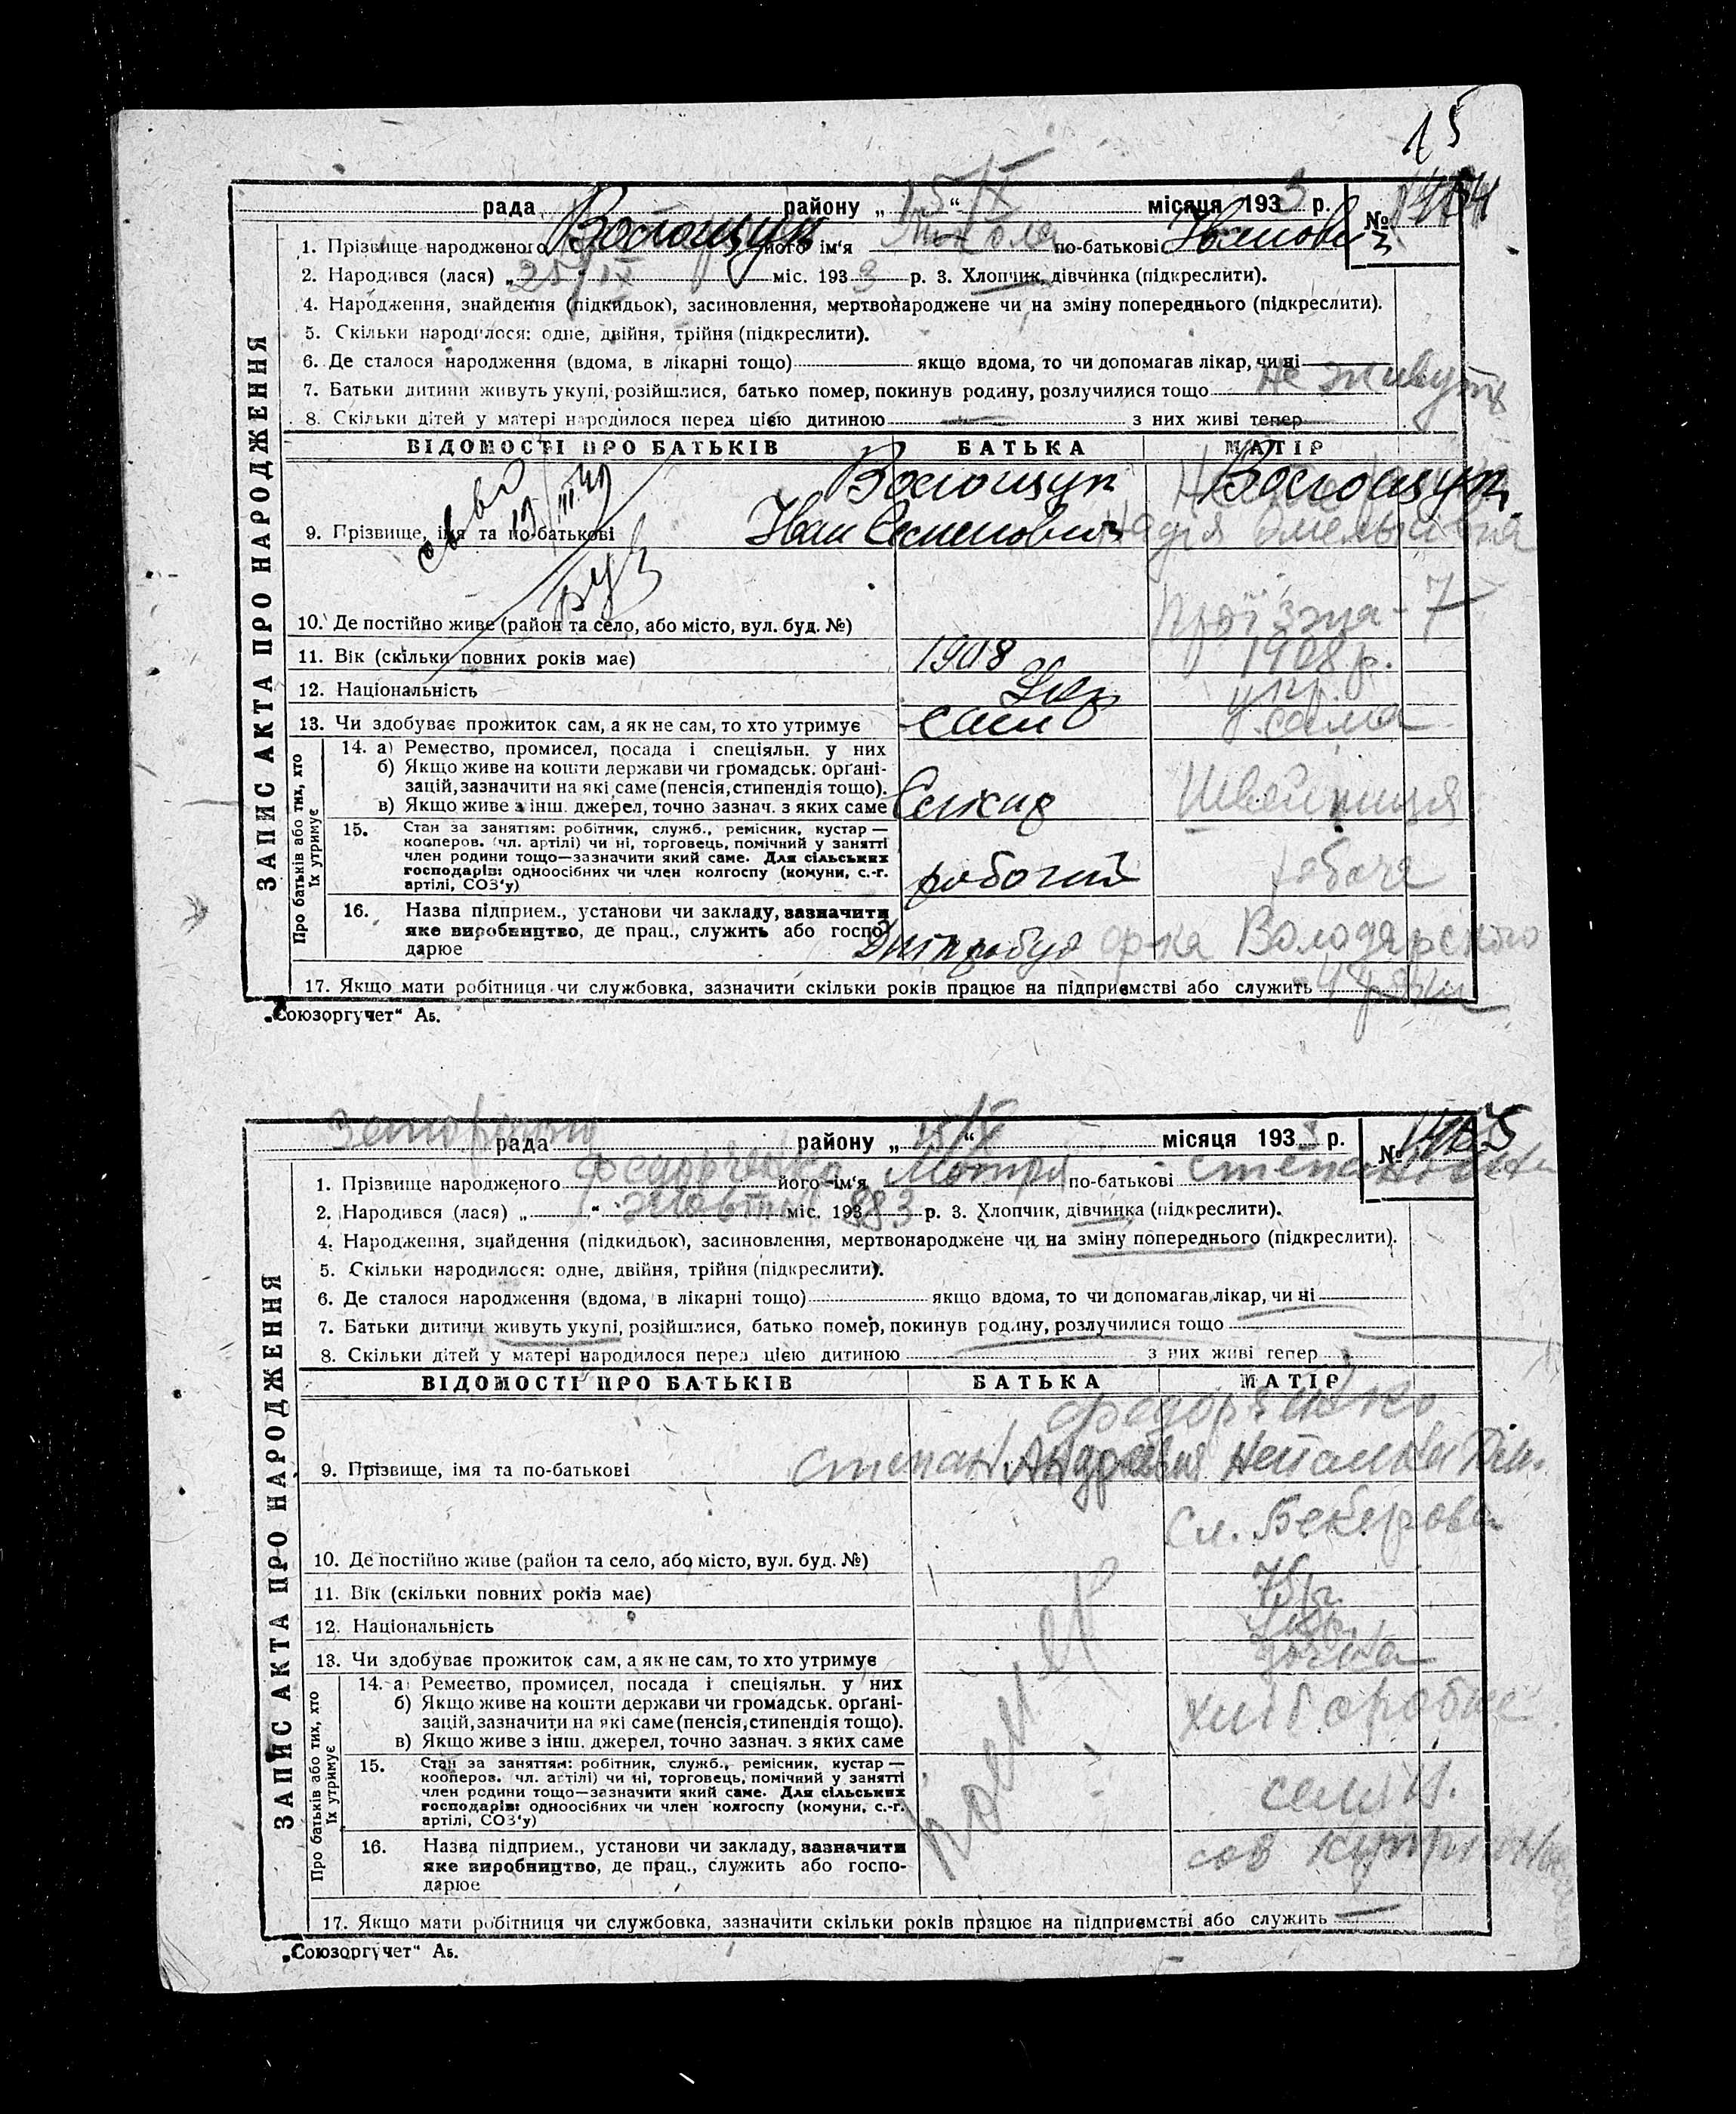 15
рада Волощук району „ 15/X “ місяця 1933 р. №
1. Прізвище народженого його ім'я Микола по-батькові Іванови
2. Народився (лася) „ 25/IX міс. 1933 р. 3. Хлопчик, дівчинка (підкреслити).
4. Народження, знайдення (підкидьок), засиновлення, мертвонароджене чи на зміну попереднього (підкреслити).
5. Скільки народилося: одне, двійня, трійня (підкреслити).
6. Де сталося народження (вдома, в лікарні тощо) якщо вдома, то чи допомагав лікар, чи ні
7. Батьки дитини живуть укупі, розійшлися, батько помер, покинув родину, розлучилися тощо не живуть
8. Скільки дітей у матері народилося перед цією дитиною з них живі тепер
ЗАПИС АКТА ПРО НАРОДЖЕННЯ
ВІДОМОСТІ ПРО БАТЬКІВ БАТЬКА МАТІР
Волощук Волощук
9. Прізвище, імя та по-батькові Іван Семенович Надія Омельянівна
10. Де постійно живе (район та село, або місто, вул. буд. №) Проїзна - 7
11. Вік (скільки повних років має) 1908 1908 р.
12. Національність Укр укр.
13. Чи здобуває прожиток сам, а як не сам, то хто утримує сам сама
Про батьків або тих, хто їх утримує
14. а) Ремество, промисел, посада і спеціяльн. у них
б) Якщо живе на кошти держави чи громадськ. орґані-
зацій, зазначити на які саме (пенсія, стипендія тощо).
в) Якщо живе з інш. джерел, точно зазнач. з яких саме
15. Стан за заняттям: робітник, служб., ремісник, кустар —
кооперов. (чл. артілі) чи ні, торговець, помічний у занятті
член родини тощо—зазначити який саме. Для сільських
господарів: одноосібних чи член колгоспу (комуни, с.-г.
артілі, СОЗ'у) робочий робоча
16. Назва підприєм., установи чи закладу, зазначити
яке виробництво, де прац., служить або госпо-
дарює Дніпробуд ф-ка Володарського
17. Якщо мати робітниця чи службовка, зазначити скільки років працює на підприємстві або служить
„Союзоргучет“ Аб.
рада району „ 15/X “ місяця 193 р. №
1. Прізвище народженого Федорченко його ім'я Мотря по-батькові Степановна
2. Народився (лася) „ “ жовтня міс. 193 883 р. 3. Хлопчик, дівчинка (підкреслити).
4. Народження, знайдення (підкидьок), засиновлення, мертвонароджене чи на зміну попереднього (підкреслити).
5. Скільки народилося: одне, двійня, трійня (підкреслити).
6. Де сталося народження (вдома, в лікарні тощо) якщо вдома, то чи допомагав лікар, чи ні
7. Батьки дитини живуть укупі, розійшлися, батько помер, покинув родину, розлучилися тощо
8. Скільки дітей у матері народилося перед цією дитиною з них живі тепер
ЗАПИС АКТА ПРО НАРОДЖЕННЯ
ВІДОМОСТІ ПРО БАТЬКІВ БАТЬКА МАТІР
Федорченко
9. Прізвище, імя та по-батькові Степан
10. Де постійно живе (район та село, або місто, вул. буд. №)
11. Вік (скільки повних років має) 75 р.
12. Національність Укр.
13. Чи здобуває прожиток сам, а як не сам, то хто утримує дочка
помер
Про батьків або тих, хто їх утримує
14. а) Ремество, промисел, посада і спеціяльн. у них
б) Якщо живе на кошти держави чи громадськ. орґані-
зацій, зазначити на які саме (пенсія, стипендія тощо).
в) Якщо живе з інш. джерел, точно зазнач. з яких саме
15. Стан за заняттям: робітник, служб., ремісник, кустар —
кооперов. чл. артілі) чи ні, торговець, помічний у занятті
член родини тощо—зазначити який саме. Для сільських
господарів: одноосібних чи член колгоспу (комуни, с.-г.
артілі, СОЗ'у) селян.
16. Назва підприєм., установи чи закладу, зазначити
яке виробництво, де прац., служить або госпо-
дарює
17. Якщо мати робітниця чи службовка, зазначити скільки років працює на підприємстві або служить
„Союзоргучет“ Аб.